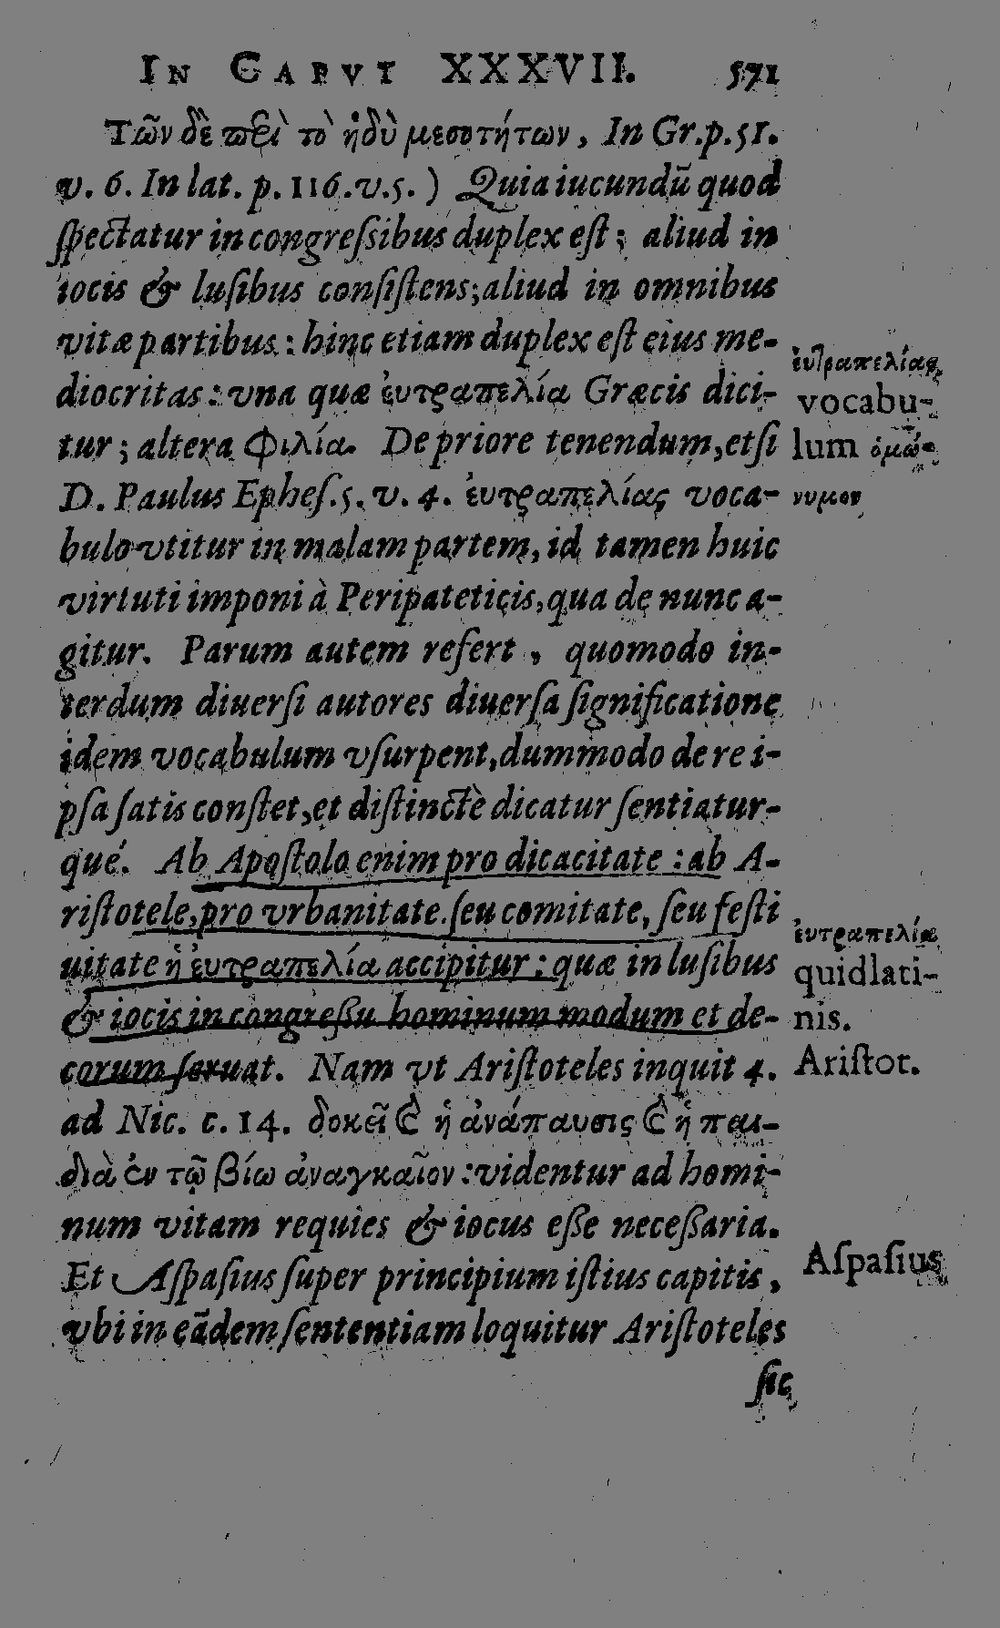 IN CAPVT XXXVII. 571
Τῶν δὲ περὶ τὸ ἡδὺ μεσοτήτων, In Gr.p.51.
v. 6. In lat. p. 116.v.5. ) Quia iucundũ quod
ſpectatur in congreſsibus duplex eſt; aliud in
iocis & luſibus conſiſtens; aliud in omnibus
vitæ partibus: hinc etiam duplex eſt eius me-
diocritas: vna quæ ἐυτραπελία Græcis dici-
tur; altera Φιλία. De priore tenendum, etſi
D. Paulus Epheſ.5. v. 4. ἐυτραπελίας voca-
bulo vtitur in malam partem, id tamen huic
virtuti imponi à Peripateticis, qua de nunc a-
gitur. Parum autem refert, quomodo in-
terdum diuerſi autores diuerſa ſignificatione
idem vocabulum vſurpent, dummodo de re i-
pſa ſatis conſtet, et diſtinctè dicatur ſentiatur-
qué. Ab Apoſtolo enim pro dicacitate: ab A-
riſtotele, pro vrbanitate. ſeu comitate, ſeu feſti
uitate ἡ ἐυτραπελία accipitur: quæ in luſibus
& iocis in congreßu hominum modum et de-
corum ſeruat. Nam vt Ariſtoteles inquit 4.
ad Nic. c. 14. δοκεῖ ἡ ἀνάπαυσις ἡ παι-
διὰ ἐν τῷ βίῳ ἀναγκαῖον: videntur ad homi-
num vitam requies & iocus eße neceßaria.
Et Aſpaſius ſuper principium iſtius capitis,
vbi in eãdem ſententiam loquitur Ariſtoteles
ſic
ἐυτραπελίας
vocabu-
lum ὁμώ-
νυμον
ἐυτραπελία
quid lati-
nis.
Ariſtot.
Aſpaſius